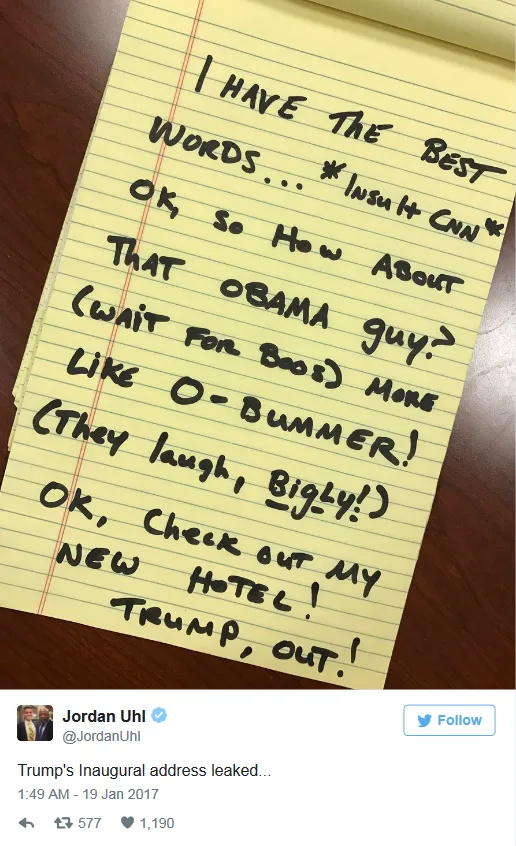 I HAVE THE BEST
WORDS... *Insult CNN*
OK, So How ABOUT
THAT OBAMA guy?
(WAIT FOR BOOS) MORE
LIKE O-BUMMER!
(They laugh, BigLy!)
OK, Check OUT MY
NEW HOTEL!
TRUMP, OUT!
Jordan Uhl
@JordanUhl
Follow
Trump's Inaugural address leaked...
1:49 AM - 19 Jan 2017
577 1,190